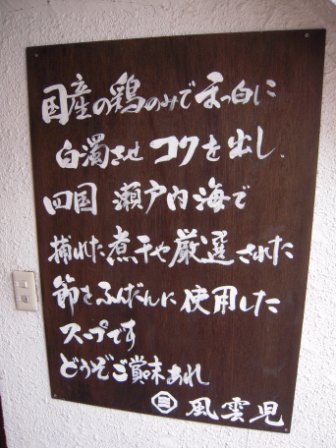 国産の鶏のみで真っ白に
白濁させ コクを出し、
四国 瀬戸内海で
捕れた煮干や厳選された
節をふんだんに使用した
スープです
どうぞご賞味あれ
風雲児